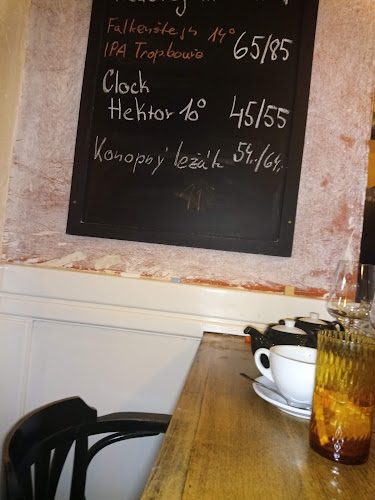 Falkenštejn 14°
IPA Trop 65/85
Clock
Hektor 10° 45/55
Konopný ležák 54,-/64,-
11°